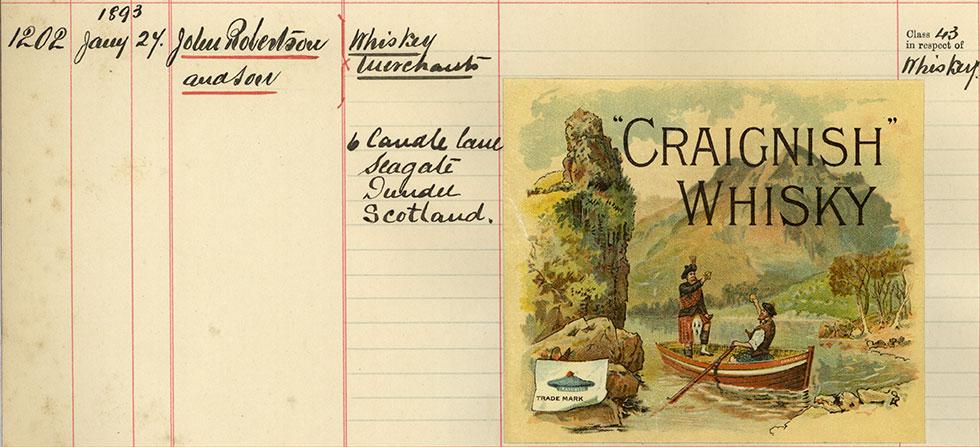 1893
1202 Jany 27. John Robertson
and Son
Whiskey
Merchants
6 Candle lane
Seagate
Dundee
Scotland.
"CRAIGNISH"
WHISKY
TRADE MARK
Class 43
in respect of
Whiskey